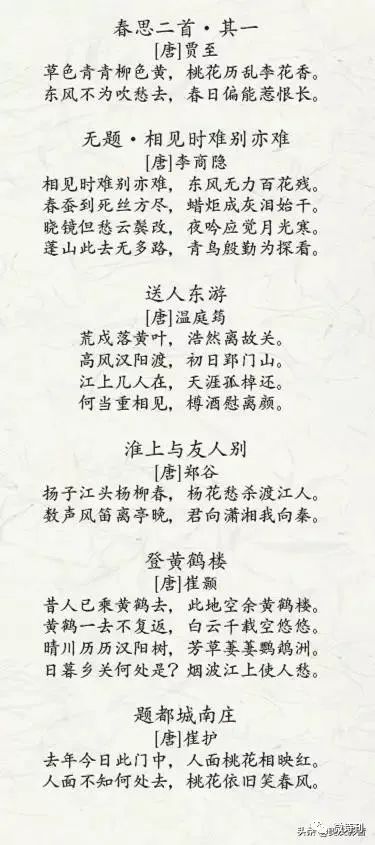 春思二首·其一
[唐]贾至
草色青青柳色黄，桃花历乱李花香。
东风不为吹愁去，春日偏能惹恨长。
无题·相见时难别亦难
[唐]李商隐
相见时难别亦难，东风无力百花残。
春蚕到死丝方尽，蜡炬成灰泪始干。
晓镜但愁云鬓改，夜吟应觉月光寒。
蓬山此去无多路，青鸟殷勤为探看。
送人东游
[唐]温庭筠
荒戍落黄叶，浩然离故关。
高风汉阳渡，初日郢门山。
江上几人在，天涯孤棹还。
何当重相见，樽酒慰离颜。
淮上与友人别
[唐]郑谷
扬子江头杨柳春，杨花愁杀渡江人。
数声风笛离亭晚，君向潇湘我向秦。
登黄鹤楼
[唐]崔颢
昔人已乘黄鹤去，此地空余黄鹤楼。
黄鹤一去不复返，白云千载空悠悠。
晴川历历汉阳树，芳草萋萋鹦鹉洲。
日暮乡关何处是？烟波江上使人愁。
题都城南庄
[唐]崔护
去年今日此门中，人面桃花相映红。
人面不知何处去，桃花依旧笑春风。
头条